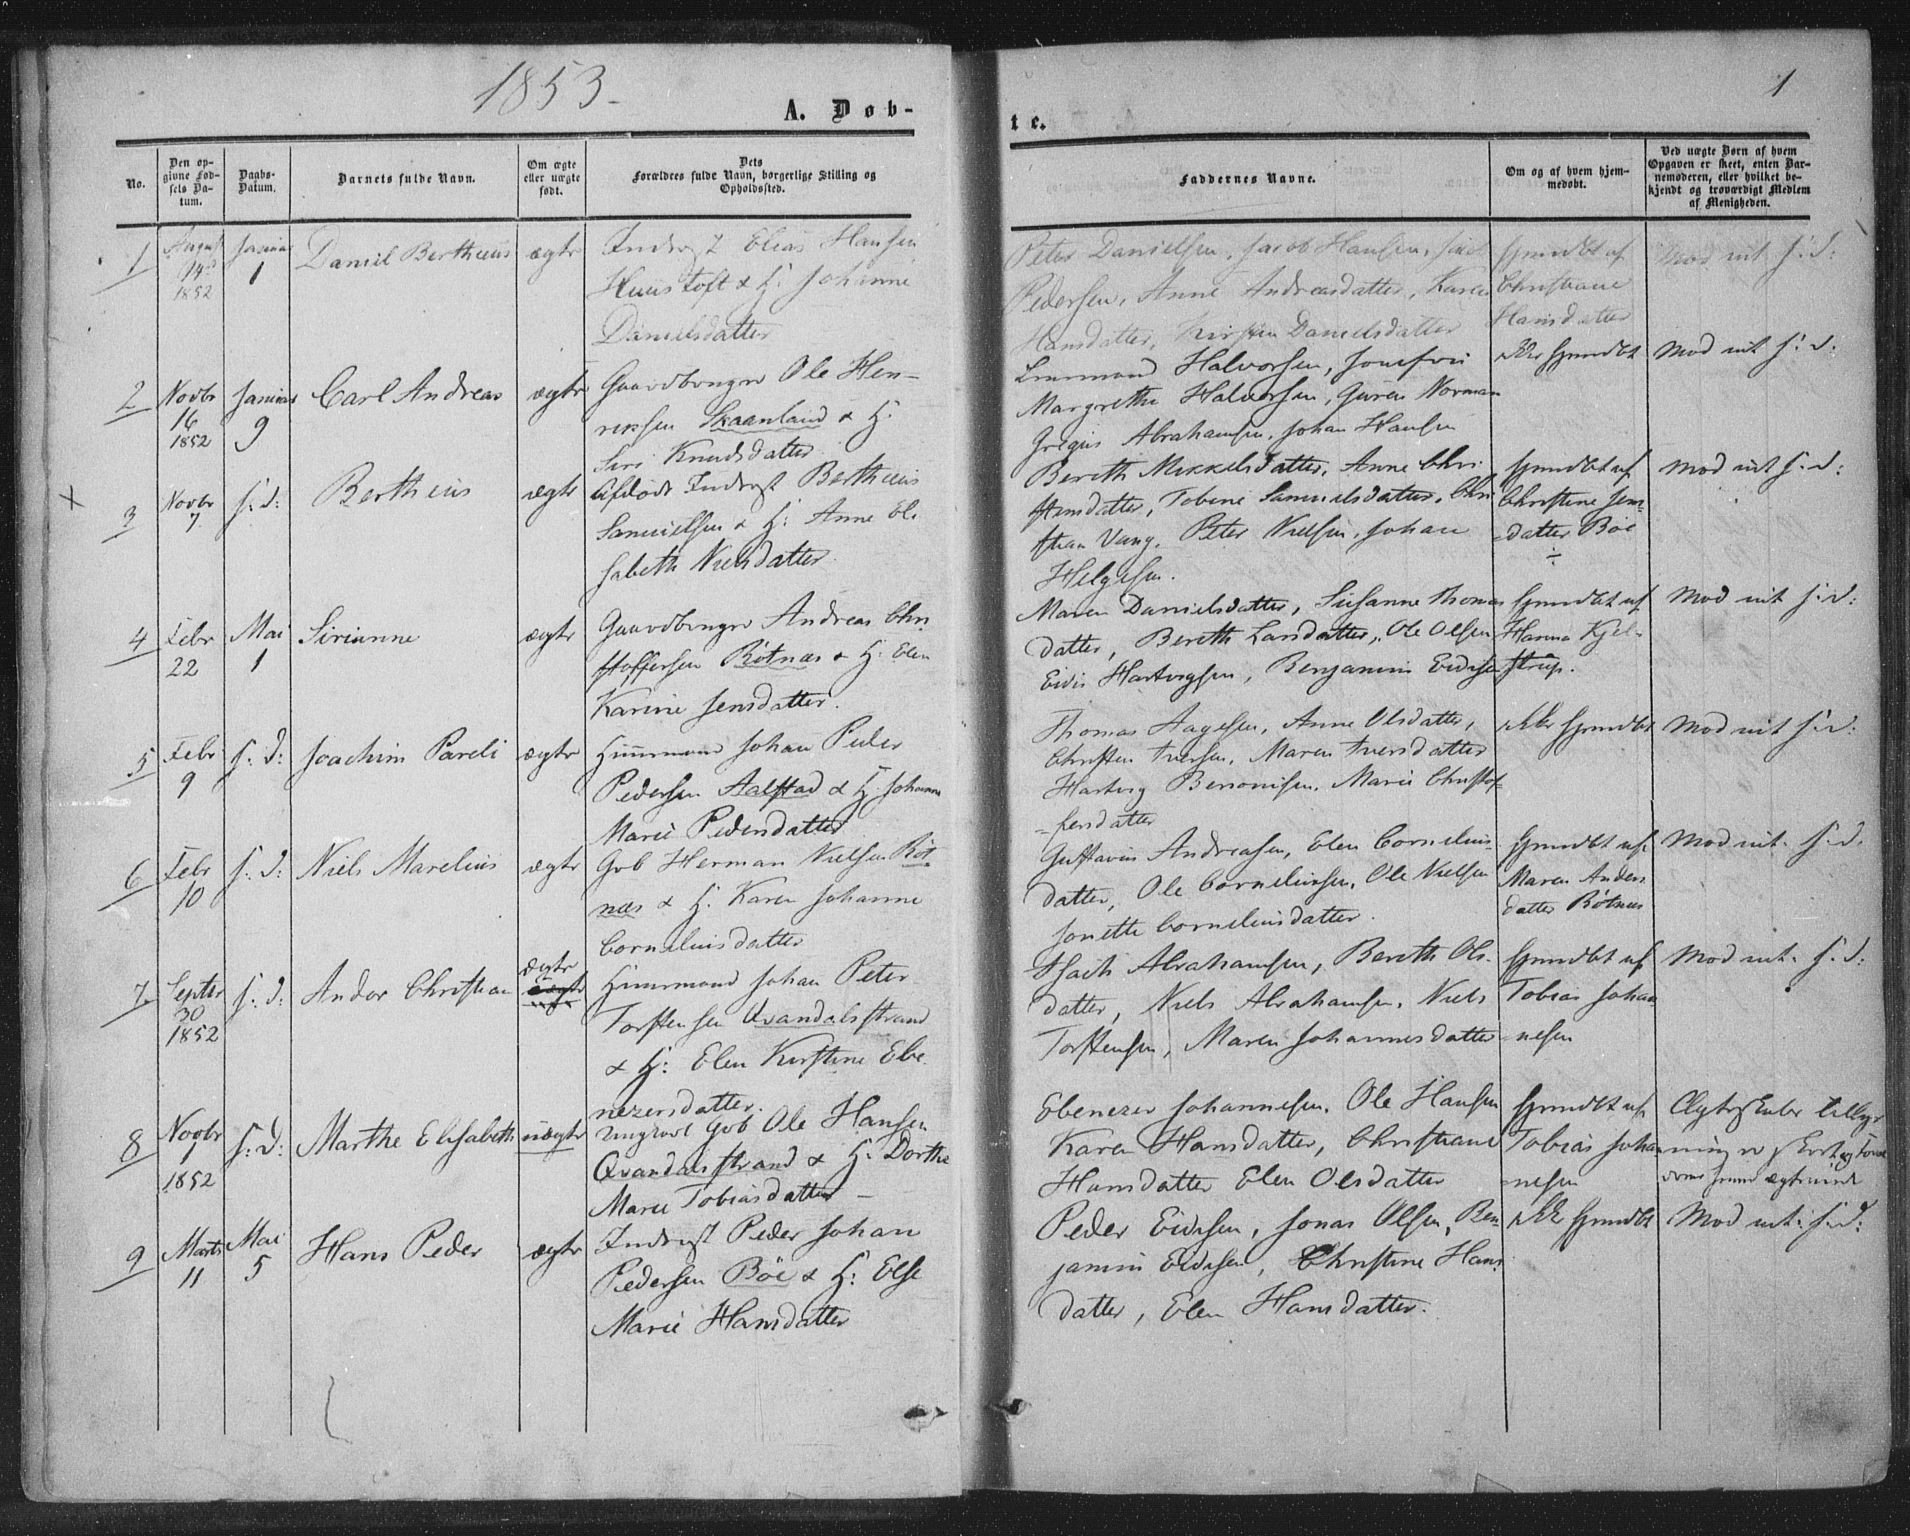 1853
A. Døb-
te.
1
No.
Den opgivne Fødsels Datum.
Daabs-Datum.
Barnets fulde Navn.
Om ægte eller uægte født.
Dets Forældres fulde Navn, borgerlige Stilling og Opholdssted.
Faddernes Navne.
Om og af hvem hjemmedøbt.
Ved uægte Børn af hvem Opgaven er skeet, enten Barnemøderen, eller hvilket bekjendt og troværdigt Medlem af Menigheden.
1
August 14 1852
Januar 1
Daniel Bertheus
ægte
Inderst Elias Hansen
Huustoft & H: Johanne
Danielsdatter
Peter Danielsen, Jacob Hansen,
Pedersen, Anne Andreasdatter, Karen
Hansdatter, Kirsten Danielsdatter
hjemdøbt af
Christiane
Hansdatter
2
Novbr 16 1852
Januar 9
Carl Andreas
ægte
Gaardbruger Ole Hen-
riksen Skaanland & H:
Siri Knudsdatter
Lensmand Halvorsen, Jomfru
Margrethe Halvorsen, Norman
Gregius Abrahamsen, Johan Hansen
ikke hjemdøbt
3
Novbr 7
s: d:
Bertheus
ægte
Afdøde Inderst Bertheus
Samuelsen & H: Anne Eli-
sabeth Nielsdatter
Bereth Mikkelsdatter, Anne Chri-
stensdatter, Tobine Samuelsdatter, Chri-
stian Vang, Peter Nielsen, Johan
Helgesen.
hjemdøbt af
Christine Jens-
datter Böe
÷
4
Febr 22
Mai 1
Sirianne
ægte
Gaardbruger Andreas Chri-
stoffersen Rötnæs & H: Elen
Karine Jensdatter.
Maren Danielsdatter, Susanne Thomas
datter, Bereth Larsdatter, Ole Olsen
Eidis Hartvigsen, Benjamin Eidissen
hjemdøbt af
Hanna Kjel-
strup.
5
Febr 9
s: d:
Joachim Pareli
ægte
Huusmand Johan Peder
Pedersen Aalstad & H: Johanna
Marie Pedersdatter
Thomas Aagesen, Anne Olsdatter,
Christen Iversen, Maren Iversdatter
Hartvig Benonisen, Marie Christof-
fersdatter
ikke hjemdøbt
6
Febr 10
s: d:
Niels Marelius
ægte
Gb Herman Nielsen Röt-
næs & H: Karen Johanne
Corneliusdatter
Gustavus Andreasen, Elen Cornelius-
datter, Ole Corneliussen, Ole Nielsen
Jonette Corneliusdatter.
hjemdøbt af
Maren Anders
datter Rötnæs
7
Septbr 30 1852
s: d:
Andor Christian
ægte
Huusmand Johan Peter
Torstensen Qvandalsstrand
& H: Elen Kirstine Ebe-
nezersdatter.
Isach Abrahamsen, Bereth Ols-
datter, Niels Abrahamsen, Niels
Torstensen, Maren Johannesdatter
hjemdøbt af
Tobias Johan-
nesen
8
Novbr 1 1852
s: d:
Marthe Elisabeth
uægte
Ungkarl Gb Ole Hansen
Qvandalsstrand & H: Dorthe
Marie Tobiasdatter
Ebenezer Johannesen, Ole Hansen
Karen Hansdatter, Christiane
Hansdatter Elen Olsdatter
hjemdøbt af
Tobias Johan-
nesen
9
Marts 11
Mai 5
Hans Peder
ægte
Inderst Peder Johan
Pedersen Böe & H: Else
Marie Hansdatter
Peder Eidissen, Jonas Olsen, Ben-
jamin Eidissen, Christine Hans-
datter, Elen Hansdatter.
ikke hjemdøbt